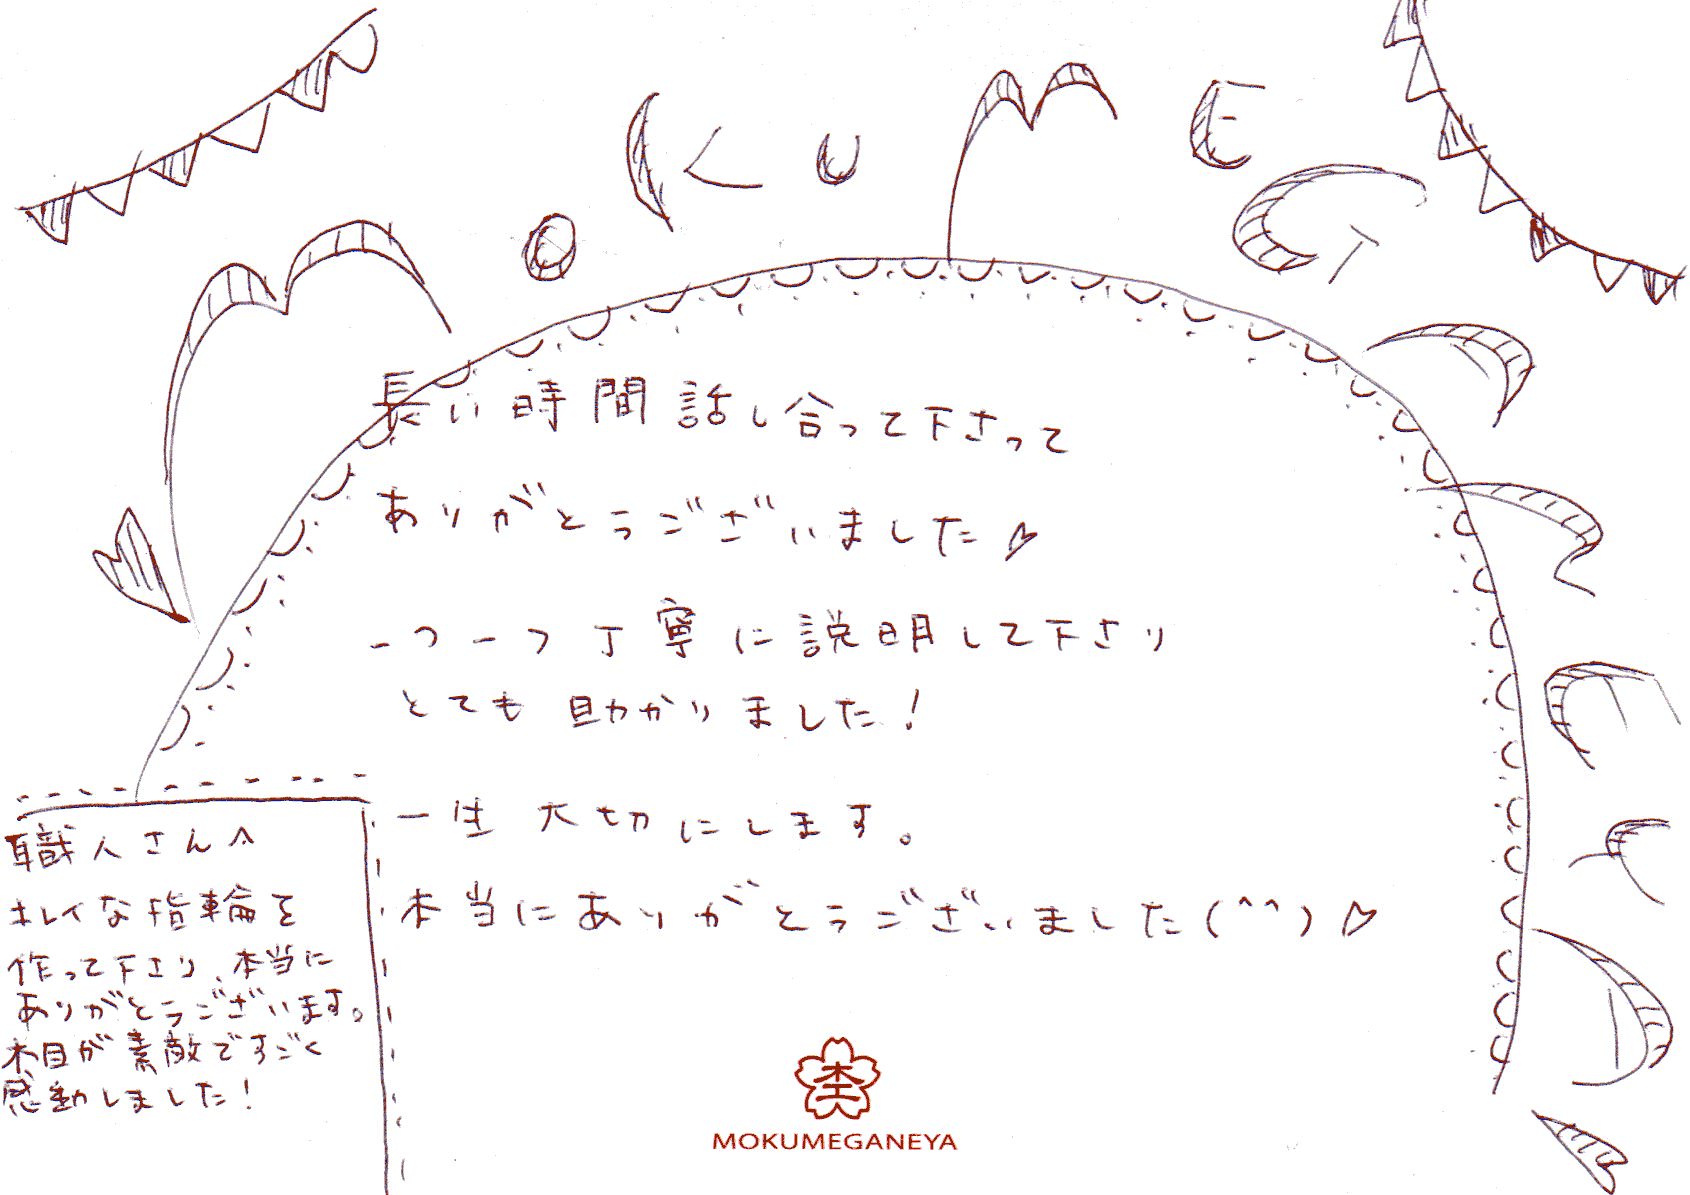 MOKUMEGANEYA
長い時間話し合って下さって
ありがとうございました♡
一つ一つ丁寧に説明して下さり
とても助かりました!
一生大切にします。
本当にありがとうございました(^^)♡
職人さんへ
キレイな指輪を
作って下さり、本当に
ありがとうございます。
木目が素敵ですごく
感動しました!
杢
MOKUMEGANEYA